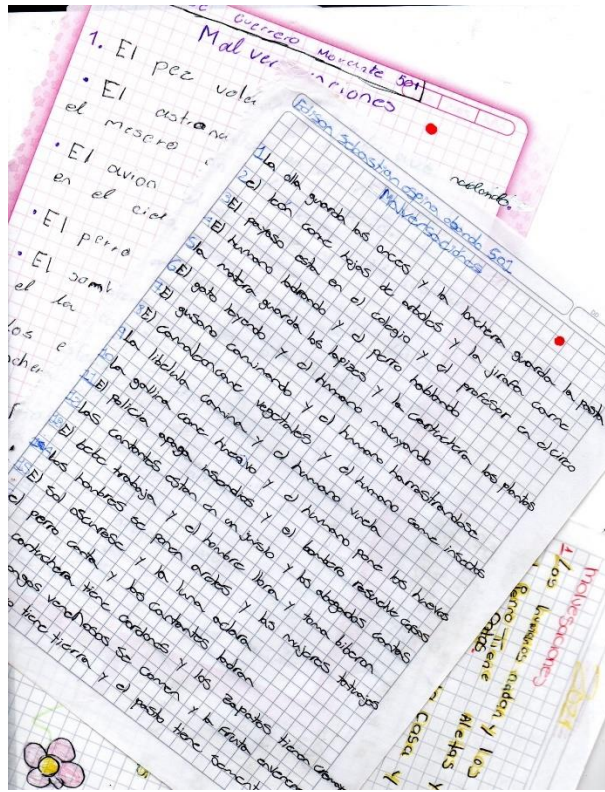 Guerrero Morante 501
Malver
1. El pez vola
nadando.
• El astrona
el mesero
• El avion
en el ciel
• El perro
• El somb
el la
los e
Edison Sebastian ospina obando 502
Malversaciones
1 La olla guarda las onces y la lonchera guarda la pasta
2 el leon come hojas de arboles y la jirafa carne
3 El payaso esta en el colegio y el profesor en el circo
4 El humano ladrando y el perro hablando
5 la matera guarda los lapizes y la cartuchera las plantas
6 El gato leyendo y el humano mauyando
7 El gusano caminando y el humano harrastrandose
8 El camaleon come vegetales y el humano come insectos
9 La libelula camina y el humano vuela
10 La gallina come huevo y el humano pone los huevos
11 El policia apaga insendios y el bombero resuelve casos
12 Las cantantes estan en un juisio y los abogados cantas
13 El bebe trabaja y el hombre llora y toma biberon
14 Los hombres se ponen aretes y las mujeres tatuajes
15 El sol oscurese y la luna aclara
el perro canta y los cantantes ladran
cartuchera tiene cordones y los zapatos tienen
ongos venenosos se comen y la fruta envenena
tiene tierra y el pasto tiene sement
2021
Malvesaciones
1. Los humanos nadan y los
perro Tiene Aletas y
Gatos.
casa y